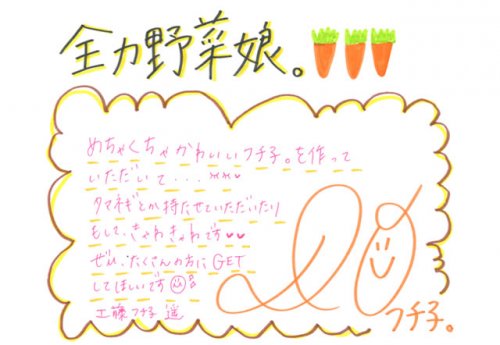 全力野菜娘。
めちゃくちゃかわいいフチ子。を作って
いただいて・・・
タマネギとか持たせていただいたり
もして、きゃわきゃわです♥♥
ぜひ、たくさんの方にGET
してほしいです
工藤フチ子 遥
フチ子。